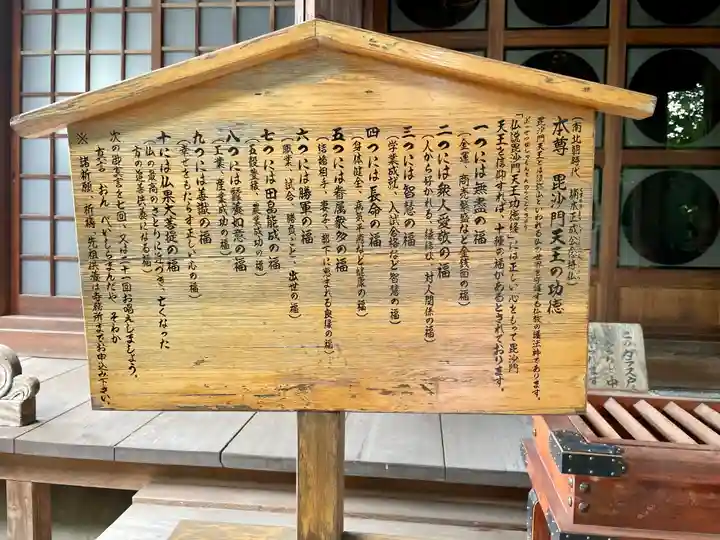 (南北朝時代 楠木正成公信仰仏)
本尊 毘沙門天王の功徳
毘沙門天王とは須弥山といわれる仏の世界を守護する仏教の護法神であります。
「仏説毘沙門天王功徳経」には正しい心をもって毘沙門
天王を信仰すれば、十種の福があるとされております。
一つには無尽の福
(金運、商売繁盛など金銭面の福)
二つには衆人愛敬の福
(人から好かれる、縁結び、対人関係の福)
三つには智慧の福
(学業成就、入試合格など智慧の福)
四つには長命の福
(身体健全、病気平癒など健康の福)
五つには眷属衆多の福
(結婚相手、妻子、部下に恵まれる良縁の福)
六つには勝軍の福
(職業、試合、勝負ごと、出世の福)
七つには田畠能成の福
(五穀豊穣、農業成功の福)
八つには蚕養如意の福
(工業、産業成功の福)
九つには善識の福
(幸せをもたらす正しい心の福)
十には仏果大菩提の福
(仏の最高のさとりに近づき、亡くなった
方の追善供養になる福)
次の御真言を七回、又は二十一回お唱えしましょう。
真言 おん べいしらまんだや そわか
※ 諸祈願、祈祷、先祖供養は寺務所までお申込み下さい。
このガラス戸